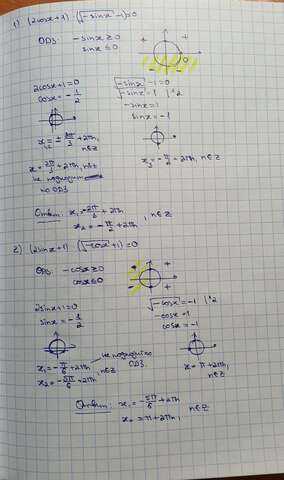 1) (2cosx+1)·(√-sinx -1)=0
ОДЗ: -sinx≥0
sinx≤0
2cosx+1=0
cosx=-1/2
x=± 2π/3+2πn,
n∈Z
x=2π/3+2πn, n∈Z
не подходит
по ОДЗ
√-sinx -1=0
√-sinx=1 |^2
-sinx=1
sinx=-1
x₃=-π/2+2πn, n∈Z
Ответ: x₁=-2π/3+2πn
x₂=-π/2+2πn, n∈Z
2) (2sinx+1)·(√-cosx+1)=0
ОДЗ: -cosx≥0
cosx≤0
2sinx+1=0
sinx=-1/2
x₁=-π/6+2πn
x₂=-5π/6+2πn, n∈Z
не подходит по
ОДЗ
√-cosx=-1 |^2
-cosx=1
cosx=-1
x=π+2πn,
n∈Z
Ответ: x₁=-5π/6+2πn
x₂=π+2πn, n∈Z